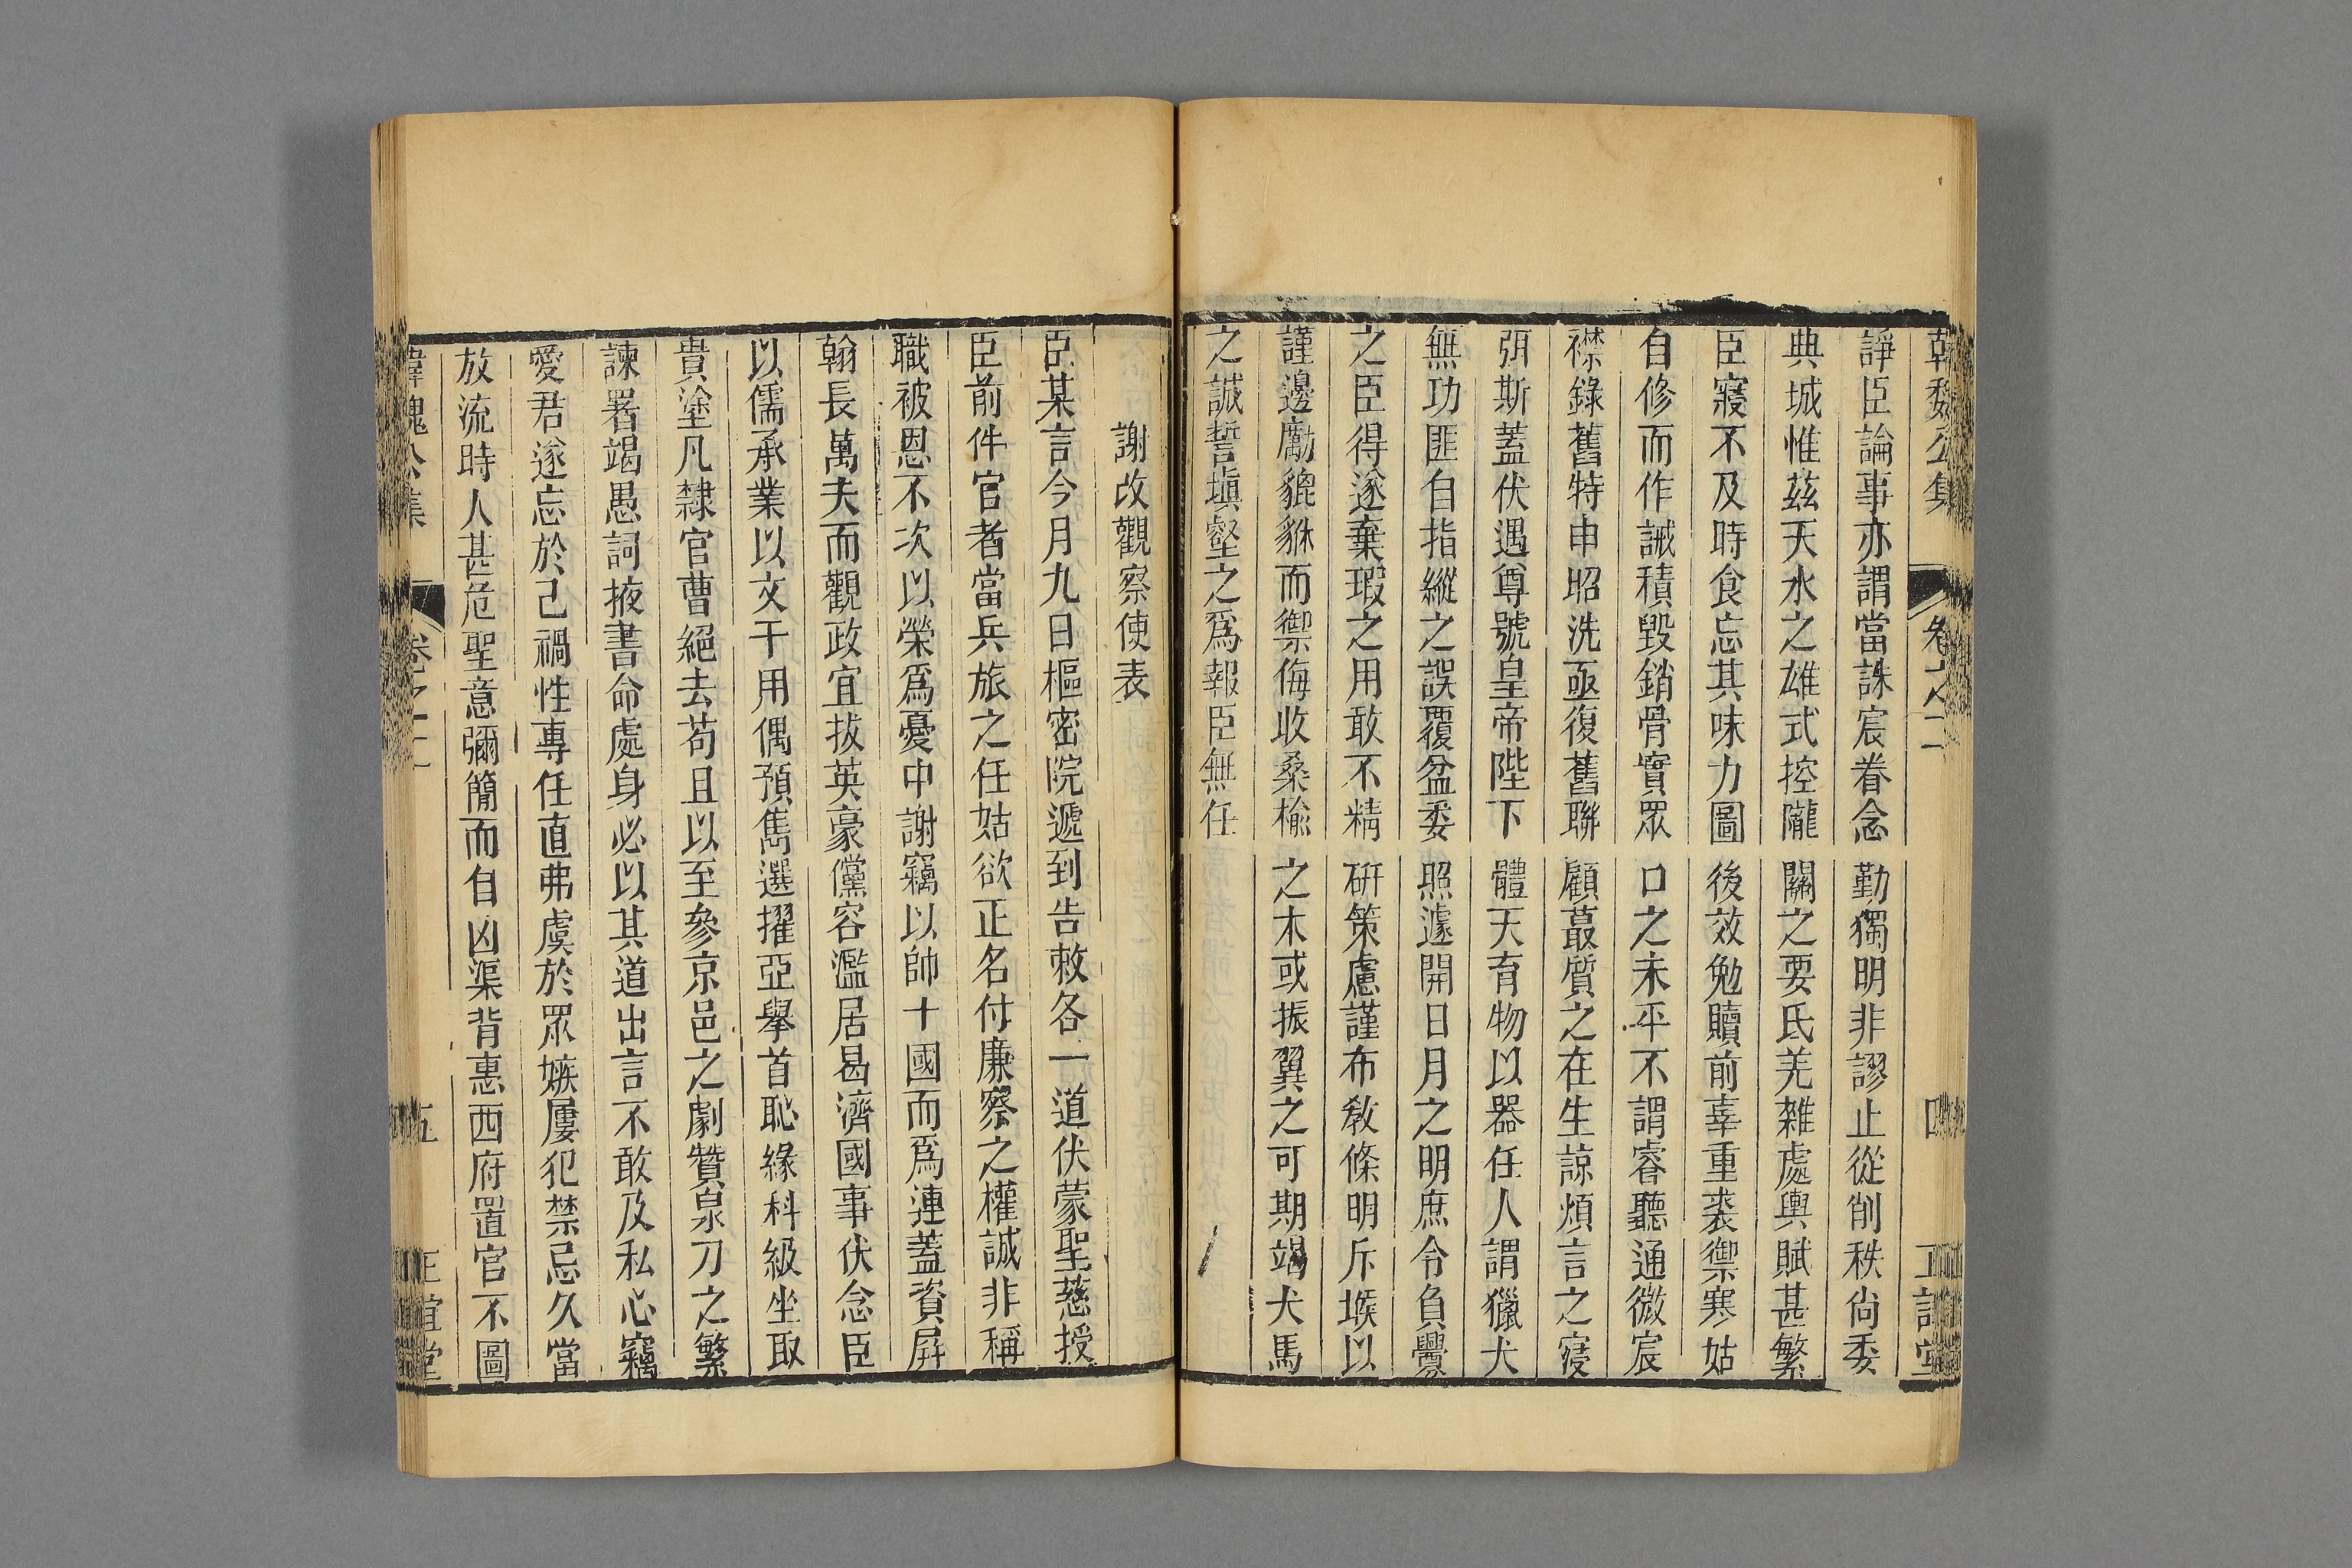 韓魏公集 卷之二 四 正誼堂
諍臣論事亦謂當誅宸眷念勤獨明非謬止從削秩尙委
典城惟茲天水之雄式控隴關之要氐羌雜處輿賦甚繁
臣寢不及時食忘其味力圖後效勉贖前辜重裘禦寒姑
自修而作誡積毀銷骨實眾口之未平不謂睿聽通微宸
襟錄舊特申昭洗亟復舊聯顧蕞質之在生諒煩言之寖
弭斯蓋伏遇尊號皇帝陛下體天育物以器任人謂獵犬
無功匪自指縱之誤覆盆委照遽開日月之明庶令負釁
之臣得遂棄瑕之用敢不精硏策慮謹布敎條明斥堠以
謹邊勵貔貅而禦侮收桑楡之木或振翼之可期竭犬馬
之誠誓塡壑之爲報臣無任
謝改觀察使表
臣某言今月九日樞密院遞到告敕各一道伏蒙聖慈授
臣前件官者當兵旅之任姑欲正名付廉察之權誠非稱
職被恩不次以榮爲憂中謝竊以帥十國而爲連蓋資屛
翰長萬夫而觀政宜拔英豪儻容濫居曷濟國事伏念臣
以儒承業以文干用偶預雋選擢亞舉首恥緣科級坐取
貴塗凡隸官曹絕去苟且以至參京邑之劇贊泉刀之繁
諫署竭愚詞掖書命處身必以其道出言不敢及私心竊
愛君遂忘於己禍性專任直弗虞於眾嫉屢犯禁忌久當
放流時人甚危聖意彌簡而自凶渠背惠西府置官不圖
韓魏公集 卷之二 五 正誼堂